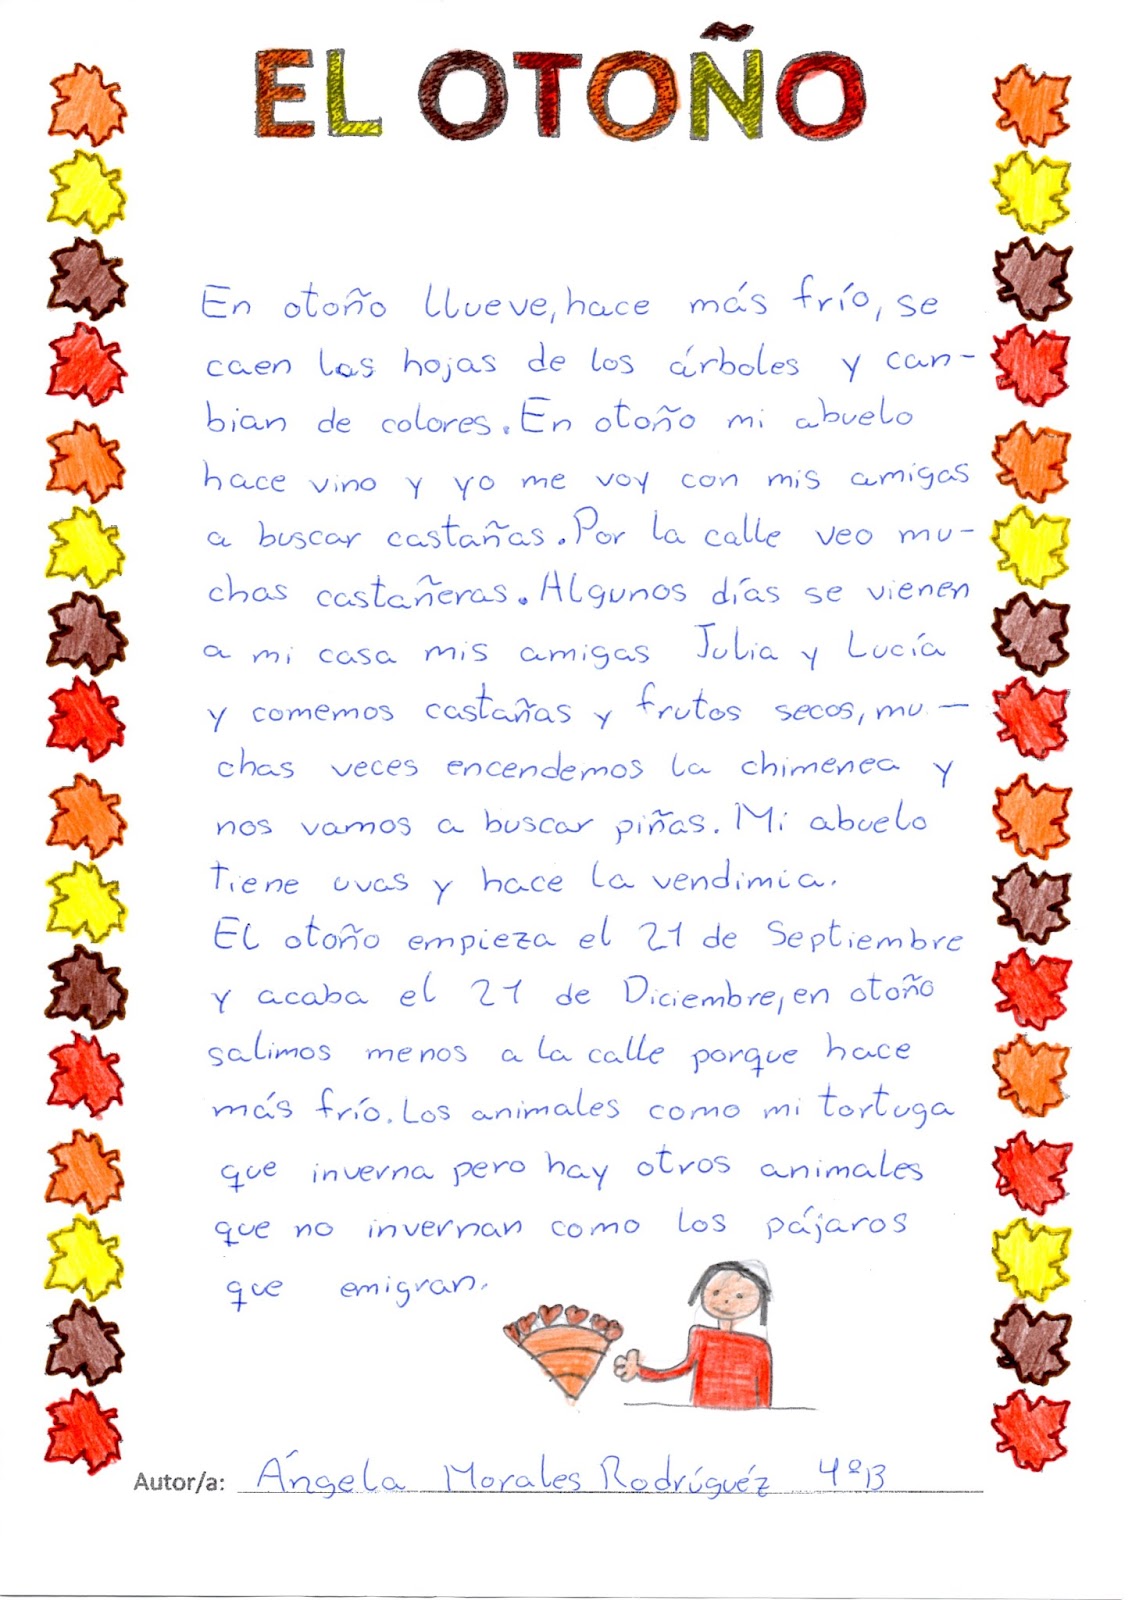 EL OTOÑO
En otoño llueve, hace más frío, se
caen las hojas de los árboles y can-
bian de colores. En otoño mi abuelo
hace vino y yo me voy con mis amigas
a buscar castañas. Por la calle veo mu-
chas castañeras. Algunos días se vienen
a mi casa mis amigas Julia y Lucía
y comemos castañas y frutos secos, mu-
chas veces encendemos la chimenea y
nos vamos a buscar piñas. Mi abuelo
tiene uvas y hace la vendimia.
El otoño empieza el 21 de Septiembre
y acaba el 21 de Diciembre, en otoño
salimos menos a la calle porque hace
más frío. Los animales como mi tortuga
que inverna pero hay otros animales
que no invernan como los pájaros
que emigran.
Autor/a: Ángela Morales Rodríguéz 4ºB